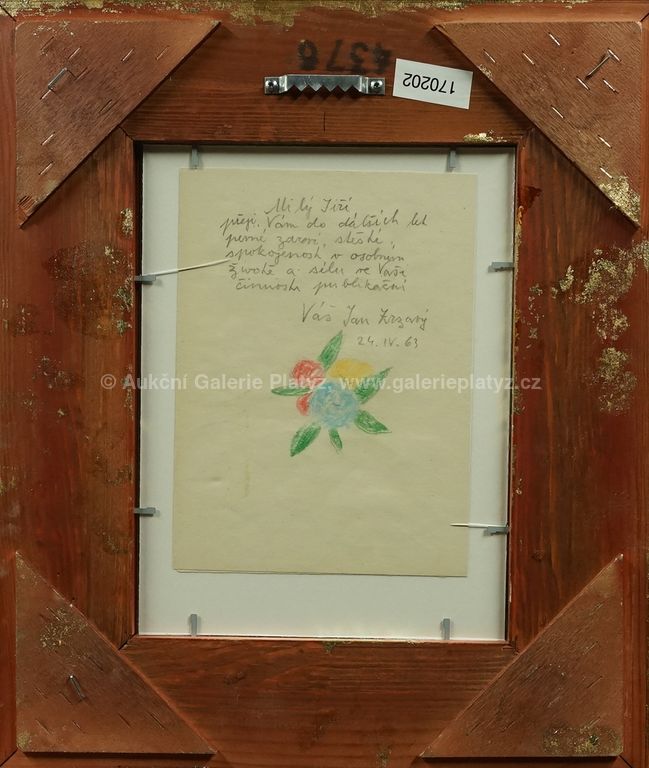 4376
170202
Milý Jiří
přeji Vám do dalších let
pevné zdraví, štěstí,
spokojenost v osobním
životě a sílu ve Vaší
činnosti publikační
Váš Jan Zrzavý
24.IV.63
© Aukční Galerie Platýz, www.galerieplatyz.cz